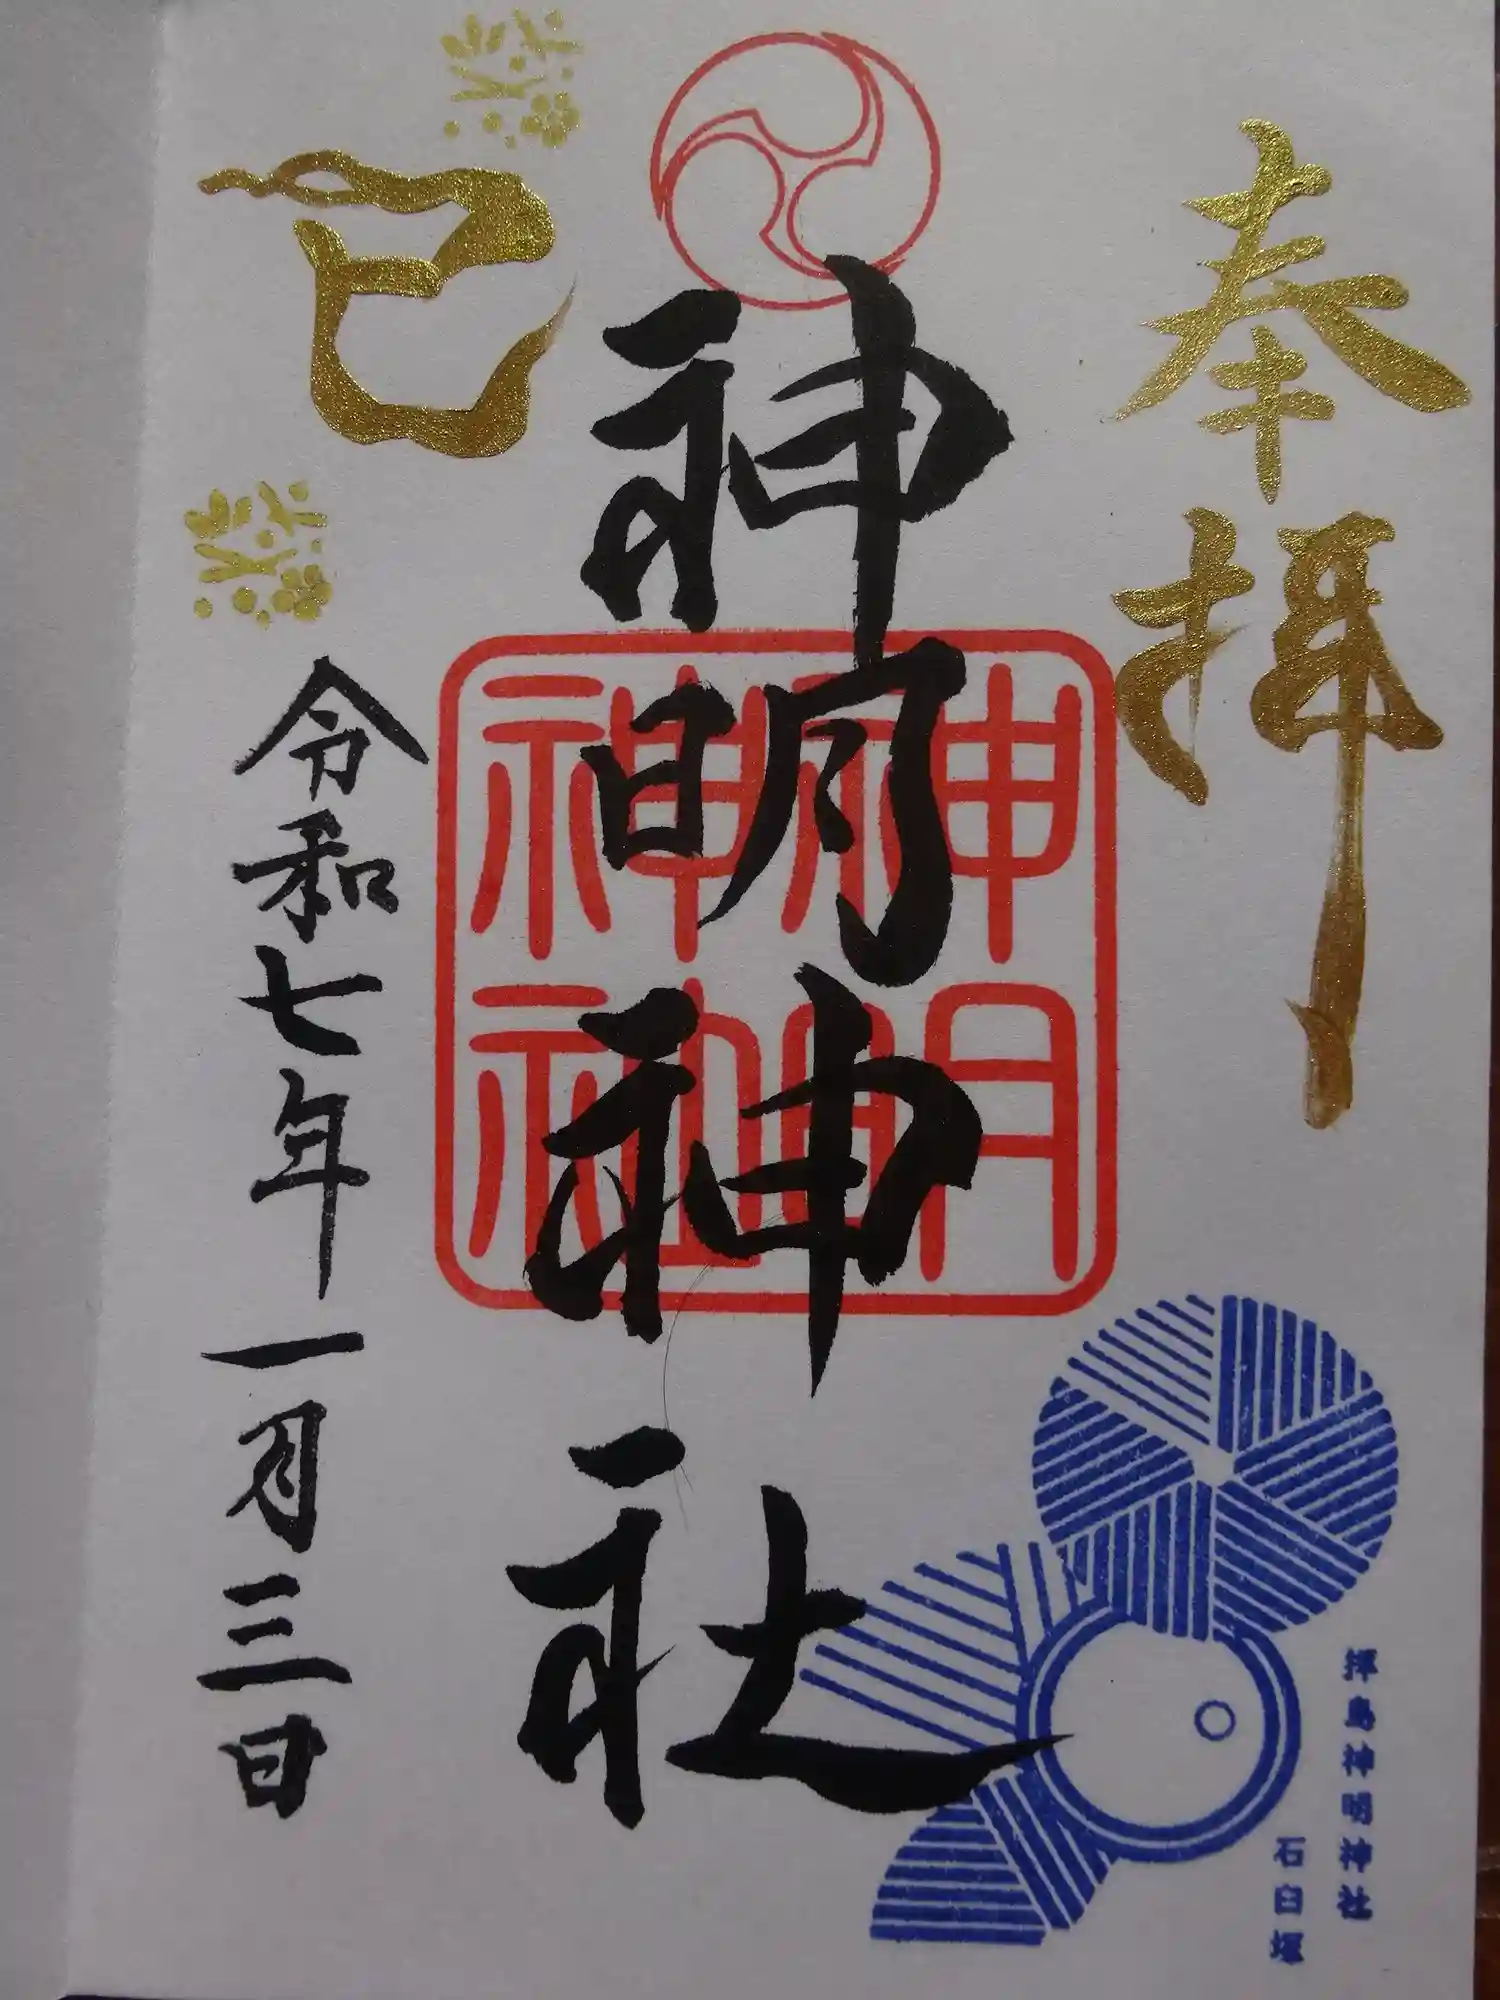 奉拝
神明神社
神明
神社
巳
令和七年一月三日
神明神社
石臼塚